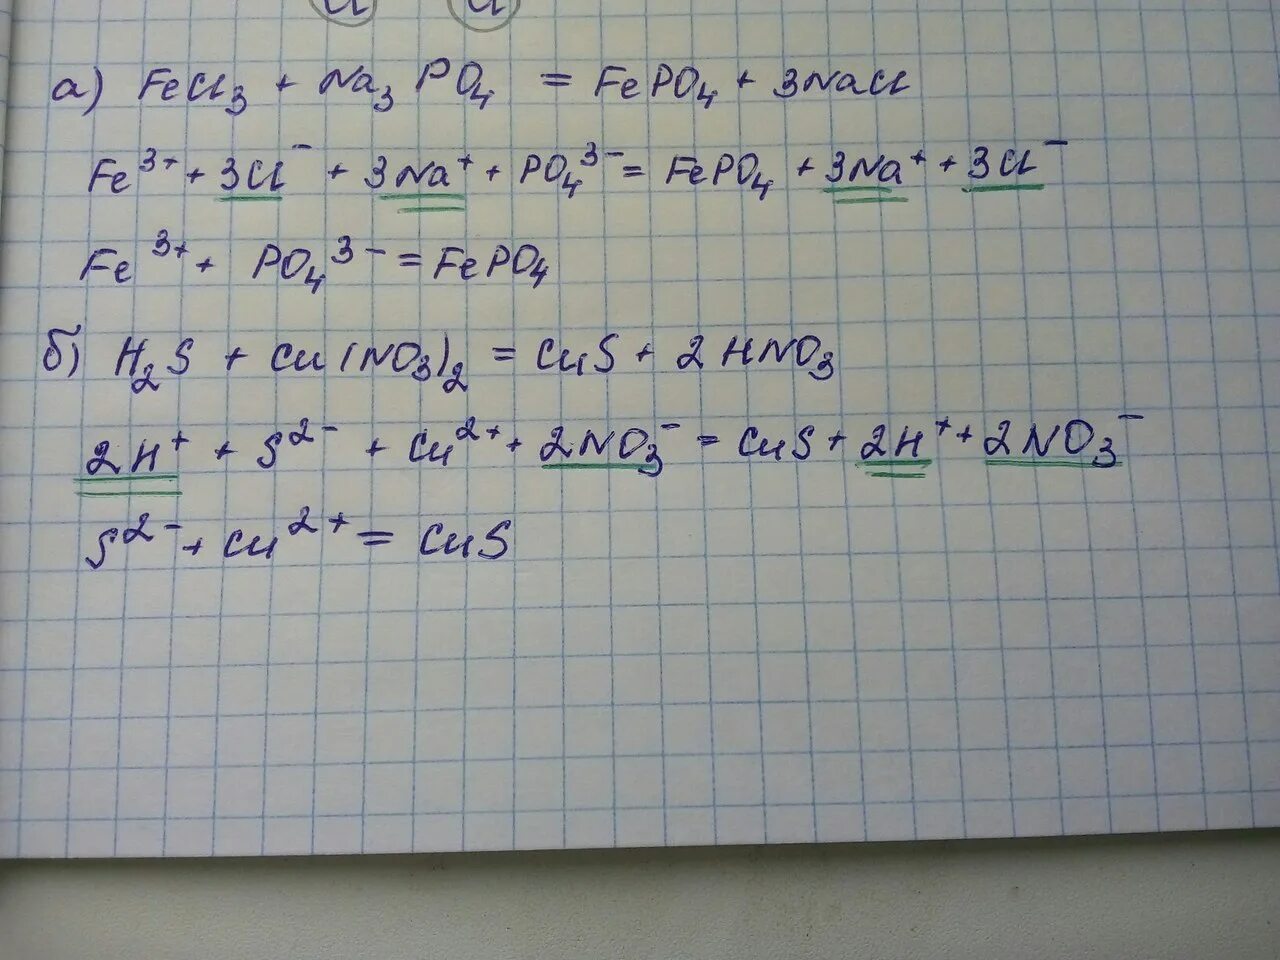 а) FeCl₃ + Na₃PO₄ = FePO₄ + 3NaCl
Fe³⁺ + 3Cl⁻ + 3Na⁺ + PO₄³⁻ = FePO₄ + 3Na⁺ + 3Cl⁻
Fe³⁺ + PO₄³⁻ = FePO₄
б) H₂S + Cu(NO₃)₂ = CuS + 2HNO₃
2H⁺ + S²⁻ + Cu²⁺ + 2NO₃⁻ = CuS + 2H⁺ + 2NO₃⁻
S²⁻ + Cu²⁺ = CuS